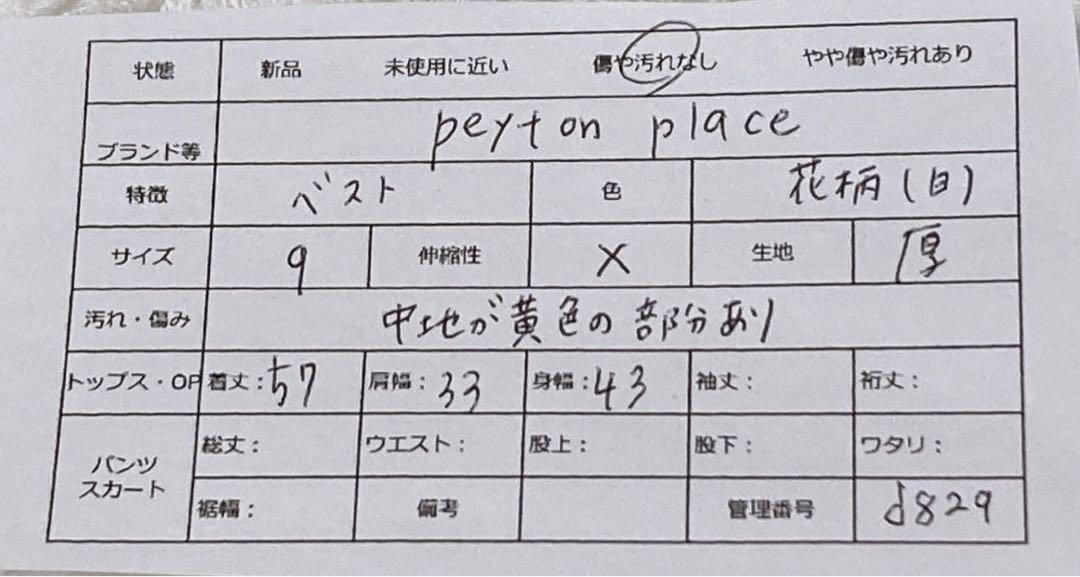 状態 新品 未使用に近い 傷や汚れなし やや傷や汚れあり
ブランド等 peyton place
特徴 ベスト 色 花柄(白)
サイズ 9 伸縮性 X 生地 厚
汚れ・傷み 中地が黄色の部分あり
トップス・OP 着丈:57 肩幅:33 身幅:43 袖丈: 裄丈:
パンツ スカート 総丈: ウエスト: 股上: 股下: ワタリ:
裾幅: 備考 管理番号 d829